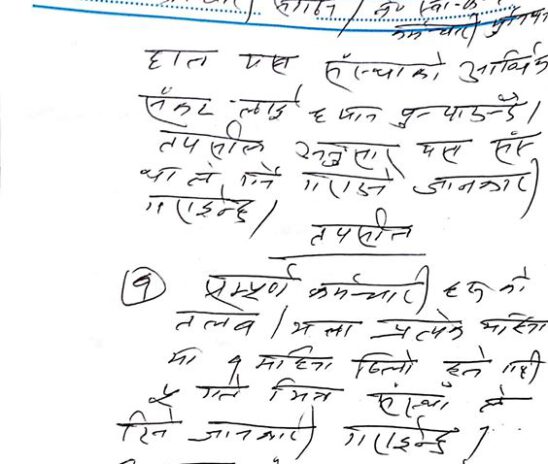 कर्मचारी
हाल यस संस्थाको आर्थिक
संकट लाई ध्यान पुर्‍याउन्दै।
तपसील अनुसार यस सं
था ले गर्ने गराउने जानकारी
गराईन्छ।
तपसील
१ सम्पूर्ण कर्मचारी हरु को
तलब / भत्ता प्रत्येक महिना
मा १ महिना ढिलो हुने गरी
५ गते भित्र संस्था ले
दिने जानकारी गराईन्छ।